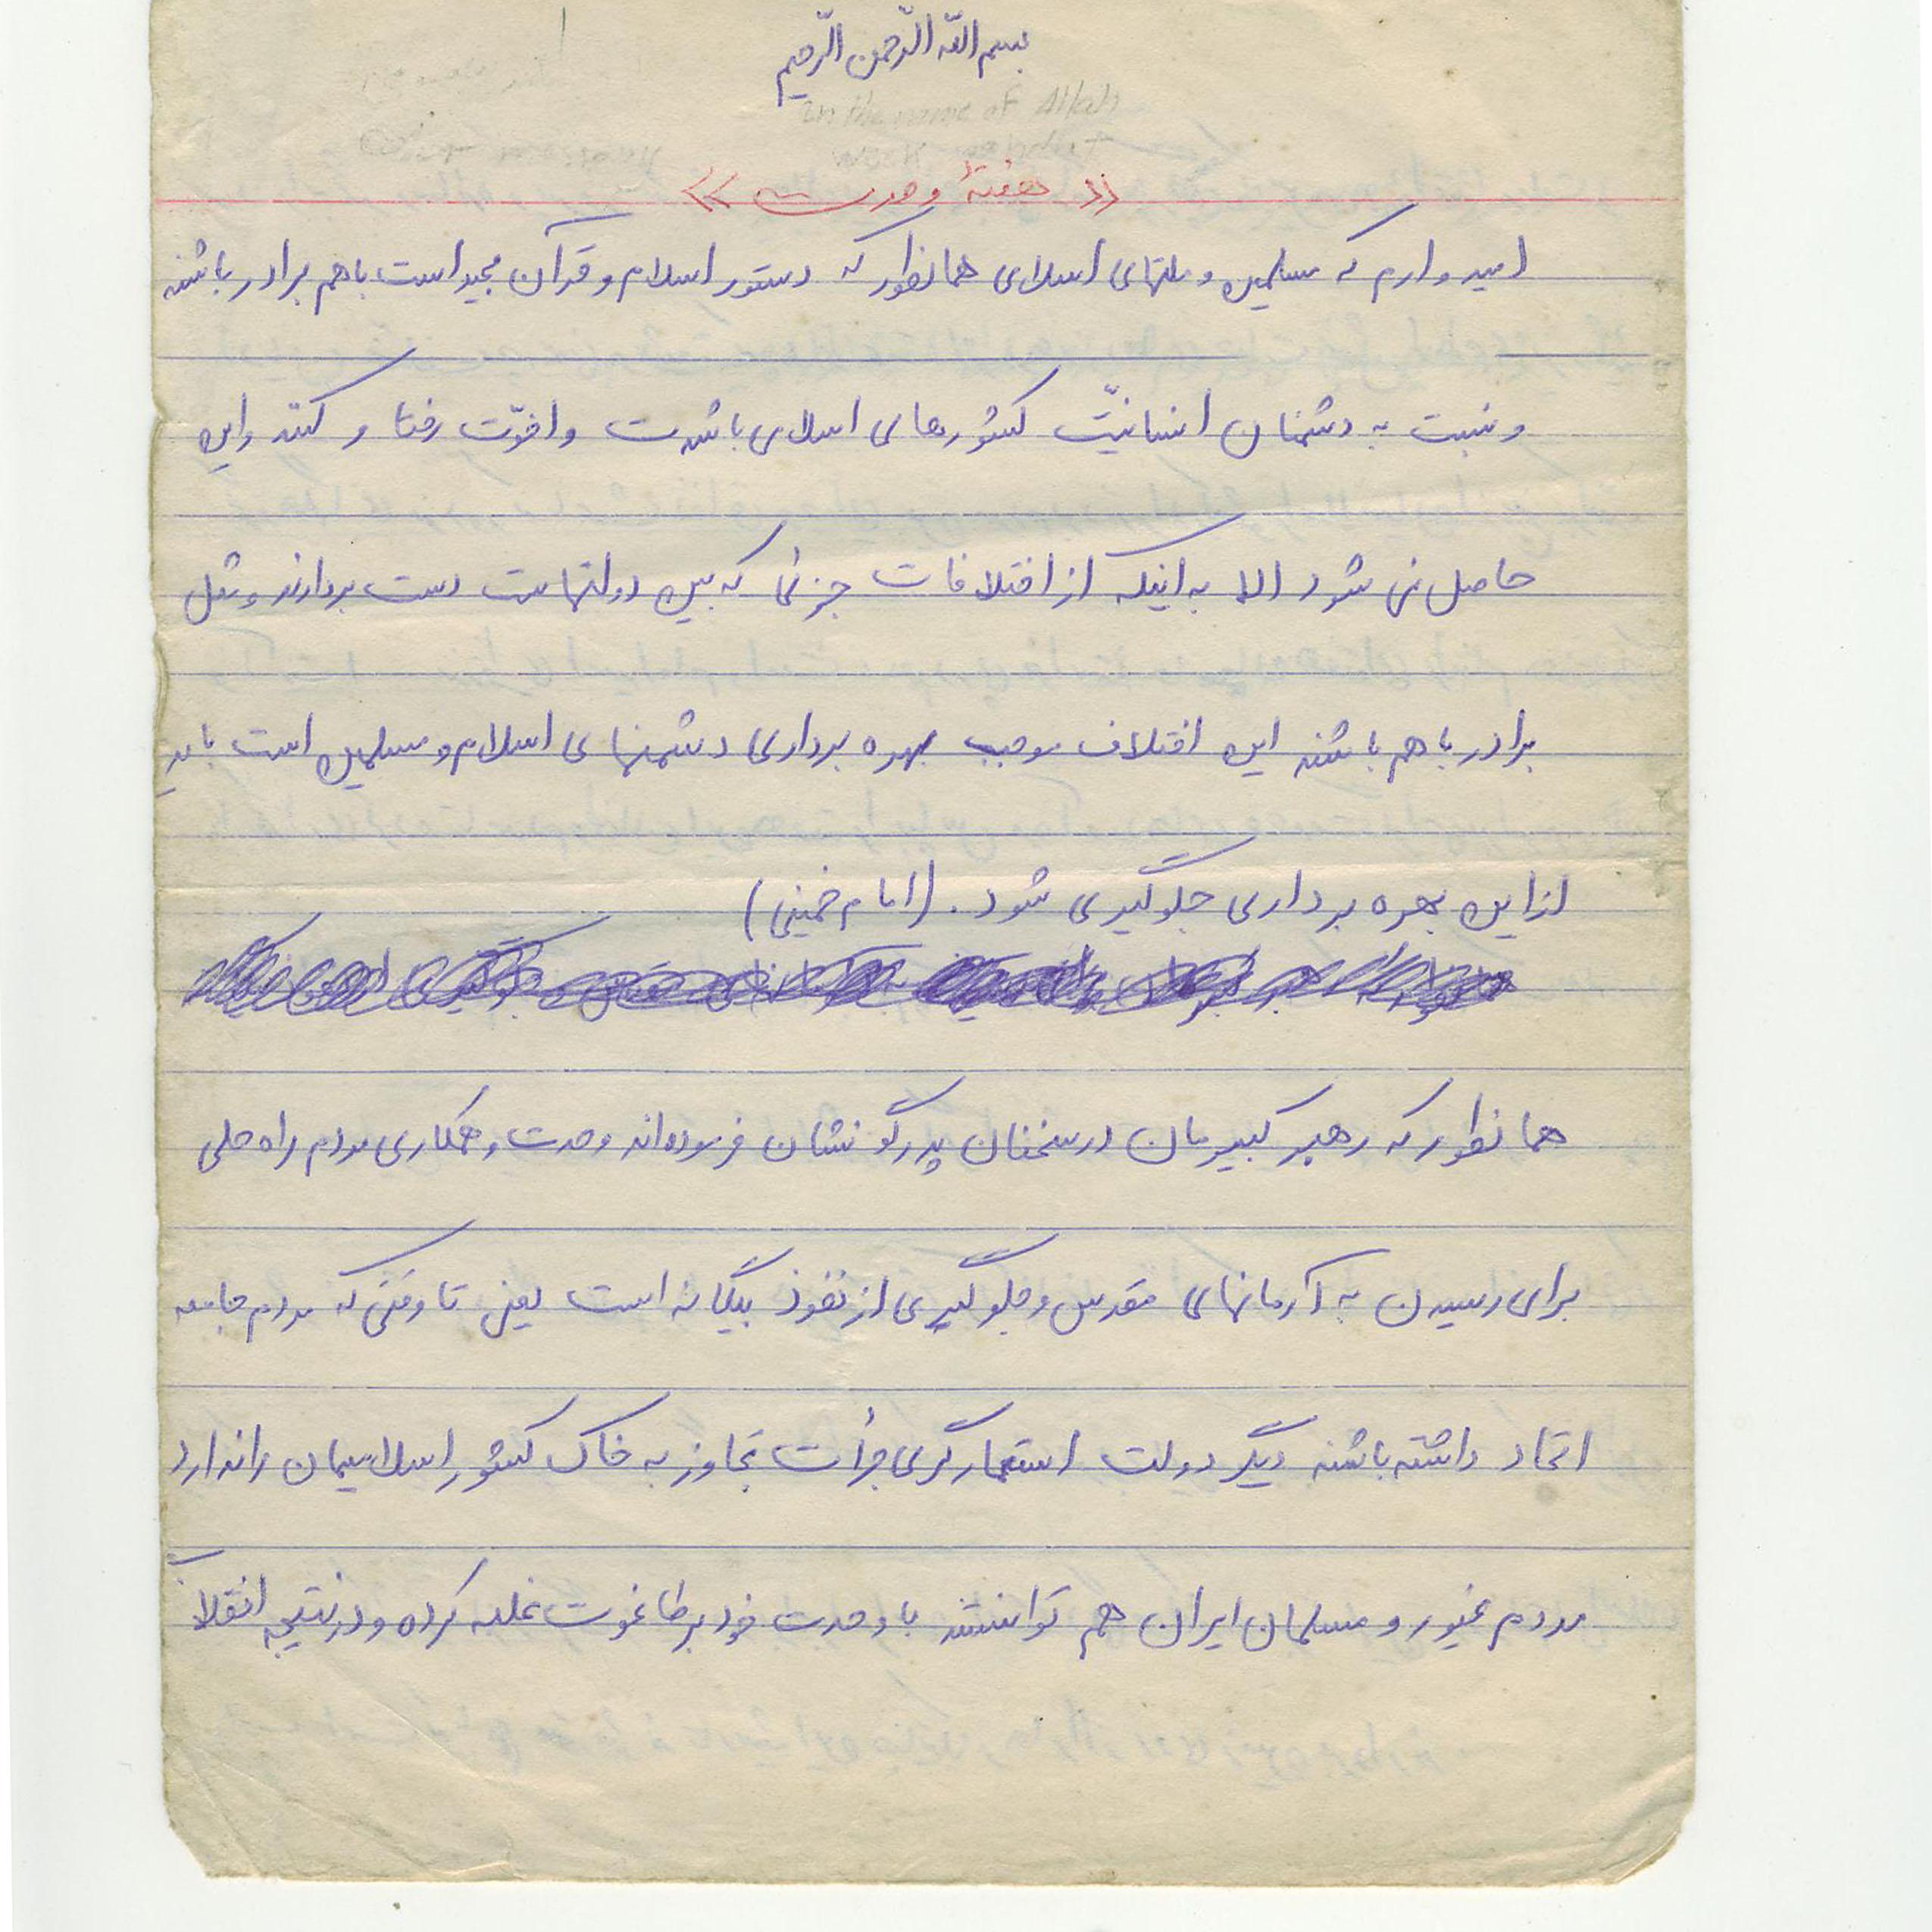 بسم الله الرّحمن الرّحیم
in the name of Allah
week
« هفتهٔ وحدت »
امیدوارم که مسلمین و ملتهای اسلامی همانطور که دستور اسلام و قرآن مجید است باهم برادر باشند
و نسبت به دشمنان انسانیّت کشورهای اسلامی باشدت و اخوّت رفتار کنند و این
حاصل نمی شود الا به اینکه از اختلافات جزئی که بین دولتهاست دست بردارند و مثل
برادر باهم باشند این اختلاف موجب بهره برداری دشمنهای اسلام و مسلمین است باید
از این بهره برداری جلوگیری شود. (امام خمینی)
همانطور که رهبر کبیرمان در سخنان پدرگونشان فرموده‌اند وحدت و همکاری مردم راه حلی
برای رسیدن به آرمانهای مقدس و جلوگیری از نفوذ بیگانه است یعنی تا وقتی که مردم جامعه
اتحاد داشته باشند دیگر دولت استعمارگری جرأت تجاوز به خاک کشور اسلامیمان را ندارد
مردم غیور و مسلمان ایران هم توانستند با وحدت خود بر طاغوت غلبه کرده و در نتیجه انقلاب